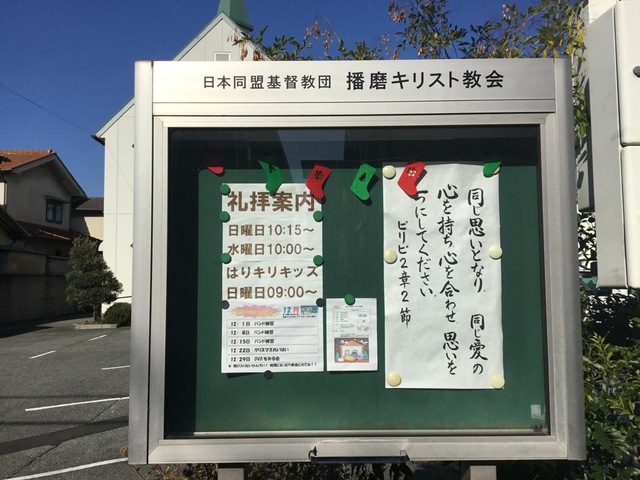 日本同盟基督教団 播磨キリスト教会
礼拝案内
日曜日10:15～
水曜日10:00～
はりキリキッズ
日曜日09:00～
12月
12/ 1日 バンド練習
12/ 8日 バンド練習
12/15日 バンド練習
12/22日 クリスマスおいわい
12/29日 DVDをみる会
同じ思いとなり、同じ愛の
心を持ち、心を合わせ、思いを
つにしてください。
ピリピ2章2節